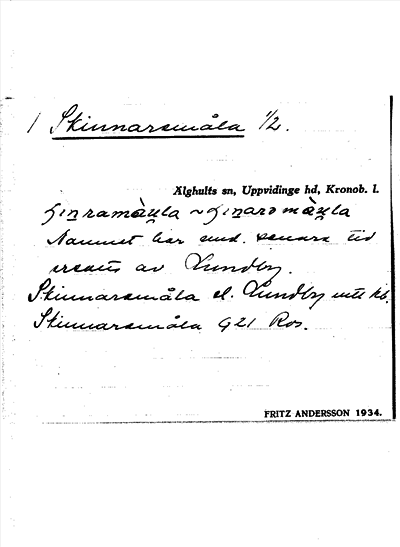 / Skinnarsmåla 1/2.
Älghults sn, Uppvidinge hd, Kronob. l.
Namnet har und. senare tid
ersatts av Lundby.
Skinnarsmåla el. Lundby enl. kb.
Skinnarsmåla G21 Ros.
FRITZ ANDERSSON 1934.